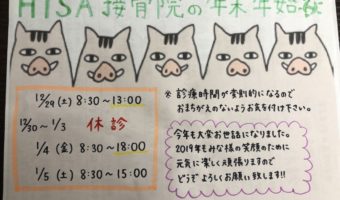 HISA 接骨院の年末年始
12/29(土) 8:30~13:00
12/30~1/3 休診
1/4(金) 8:30~18:00
1/5(土) 8:30~15:00
※ 診療時間が変動的になるので
おまちがえのないようお気を付け下さい。
今年も大変お世話になりました。
2019年もみな様の笑顔のために
元気に楽しく頑張りますので
どうぞよろしくお願い致します!!